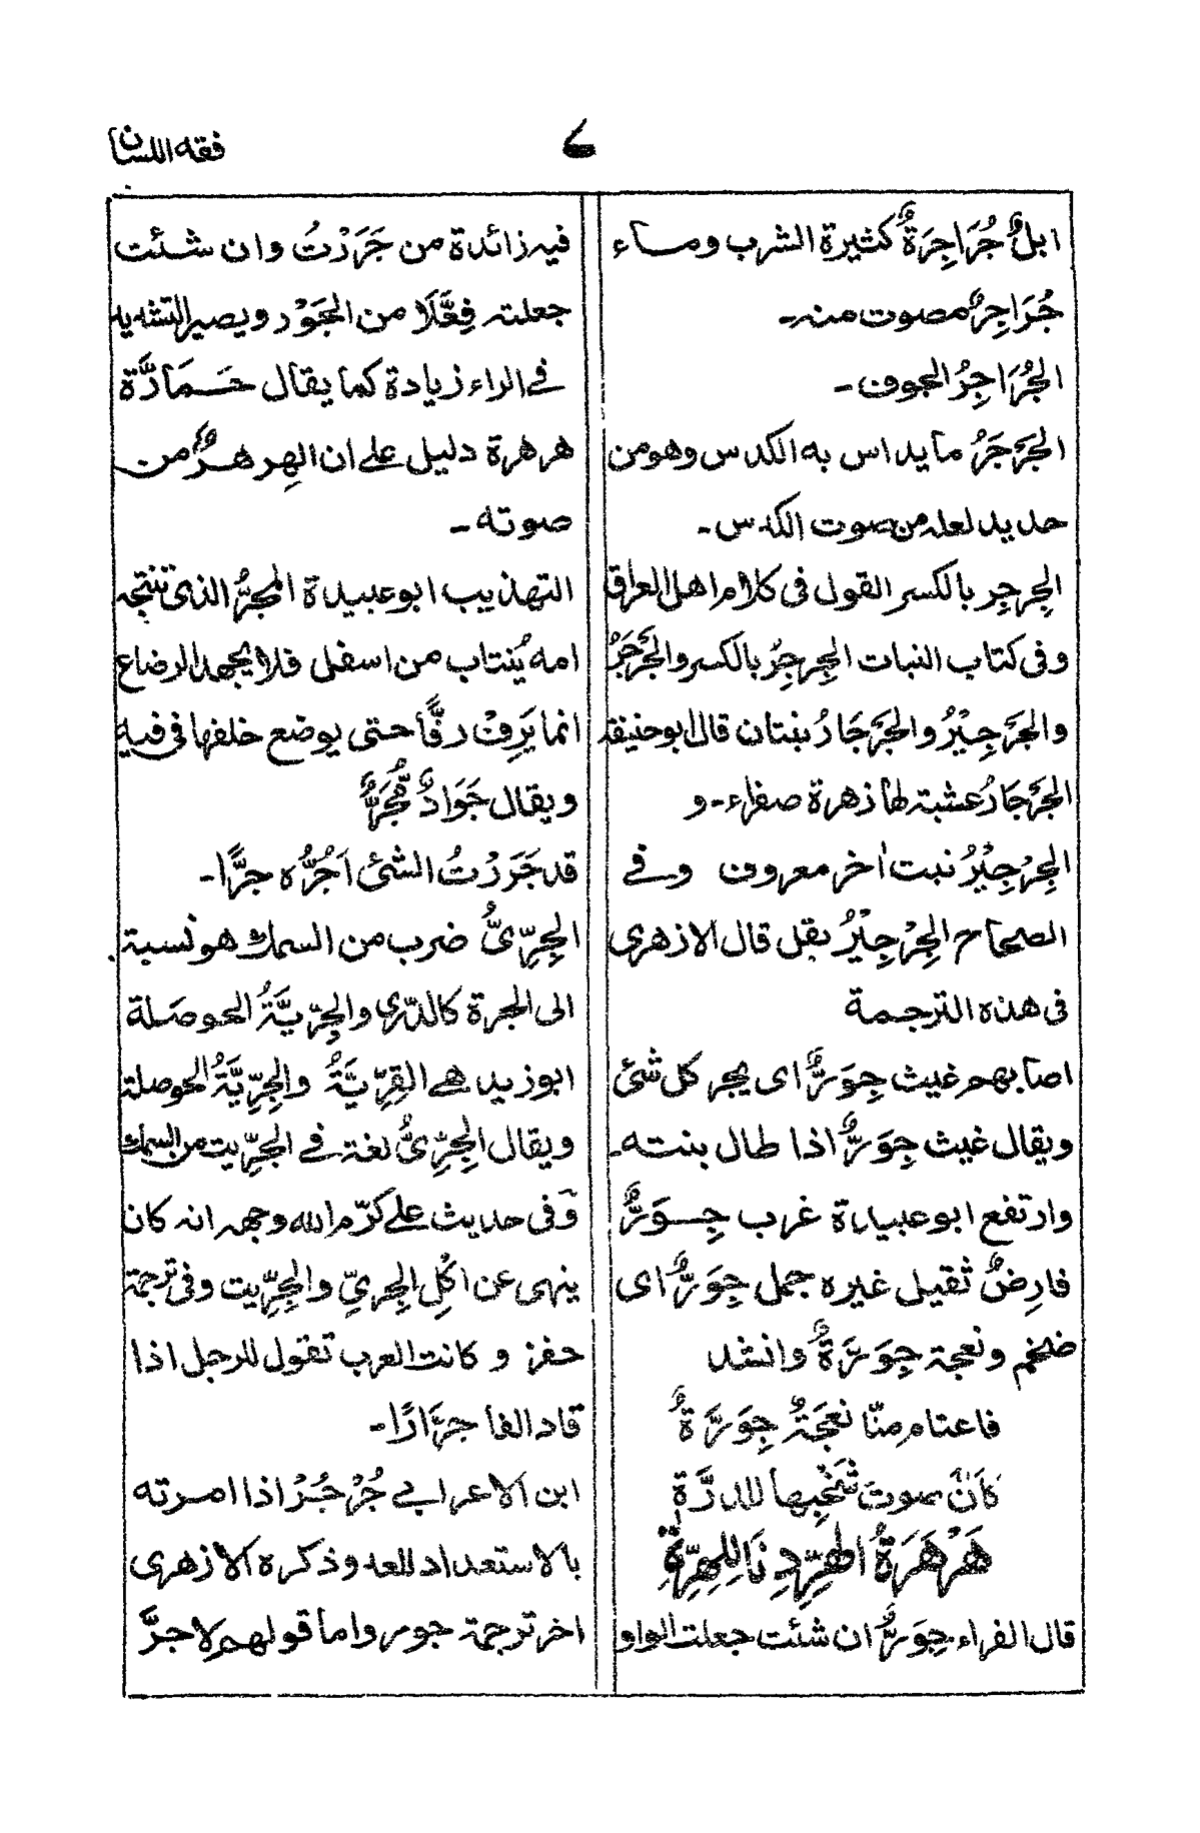 فقه اللسان
ابلٌ جُرَاجِرَةٌ كثيرة الشرب وماء
جُرَاجِرٌ مصوت منہ۔
الجُرَاجِرُ الجوف۔
الجَرْجَرُ ما يداس به الكدس وهو من
حديد لعلہ من صوت الكدس۔
الجِرجِر بالكسر القول فی كلام اهل العراق
وفی كتاب النبات الجِرجِرُ بالكسر والجَرْجَرُ
والجَرْجِيْرُ والجَرْجَارُ نبتان قال ابوحنيفة
الجَرْجَارُ عشبۃ لها زهرة صفراء۔ و
الجِرْجِيْرُ نبت اٰخر معروف وفے
الصحاح الجِرْجِيْرُ بقل قال الازهری
فی هذه الترجمة
اصابهم غيث جِوَرٌّ ای يجر كل شئ
ويقال غيث جِوَرٌّ اذا طال بنته۔
وارتفع ابوعبيدة غرب جِوَرٌّ
فارِضٌ ثقيل غيره جمل جِوَرٌّ ای
ضخم ونعجۃ جِوَرَّةٌ وانشد
فاعتام مِنّا نعجَةٌ جِوَرَّةٌ
كَاَنَّ صوت شَخْبِها للدرَّةِ
هَرْهَرَةُ الهِرِّ دِنَا لِلهِرَّةِ
قال الفراء جِوَرٌّ ان شئت جعلت الواو
فيہ زائدة من جَرَرْتُ وان شئت
جعلتہ فِعَّلًا من الجَوْر ويصير التشديد
فے الراء زيادة كما يقال حَمَارَّة
هرهرة دليل علے ان الهِر هرٌّ من
صوته۔
التهذيب ابوعبيدة المُجَرُّ الذی تنتجہ
امه يُنتاب من اسفل فلا يجهد الرضاع
انما يَرِفُ رفًّا حتی يوضع خلفها فی فيه
ويقال جَوَادٌ مُجَرٌّ
قد جَرَرْتُ الشئ اَجُرُّه جرًّا۔
الجِرِّیُّ ضرب من السمك هو نسبة
الی الجرة كالدّری والجِرّيَّةُ الحوصَلة
ابوزيد هے القِرِّيَّةُ والجِرِّيَّةُ الحوصلة
ويقال الجِرِّیُّ لغۃ فے الجِرِّيت من السمك
وَفی حديث علے كرّم الله وجهہ انہ كان
ينهی عن اكْلِ الجِریِّ والجِرِّيت وفی ترجمۃ
حفز و كانت العرب تقول للرجل اذا
قاد الفا جرَّارًا۔
ابن الاعرابے جُرْجُرْ اذا امرته
بالاستعداد للعدو ذكره الازهری
اخر ترجمۃ جور واما قولهم لاجرَّ